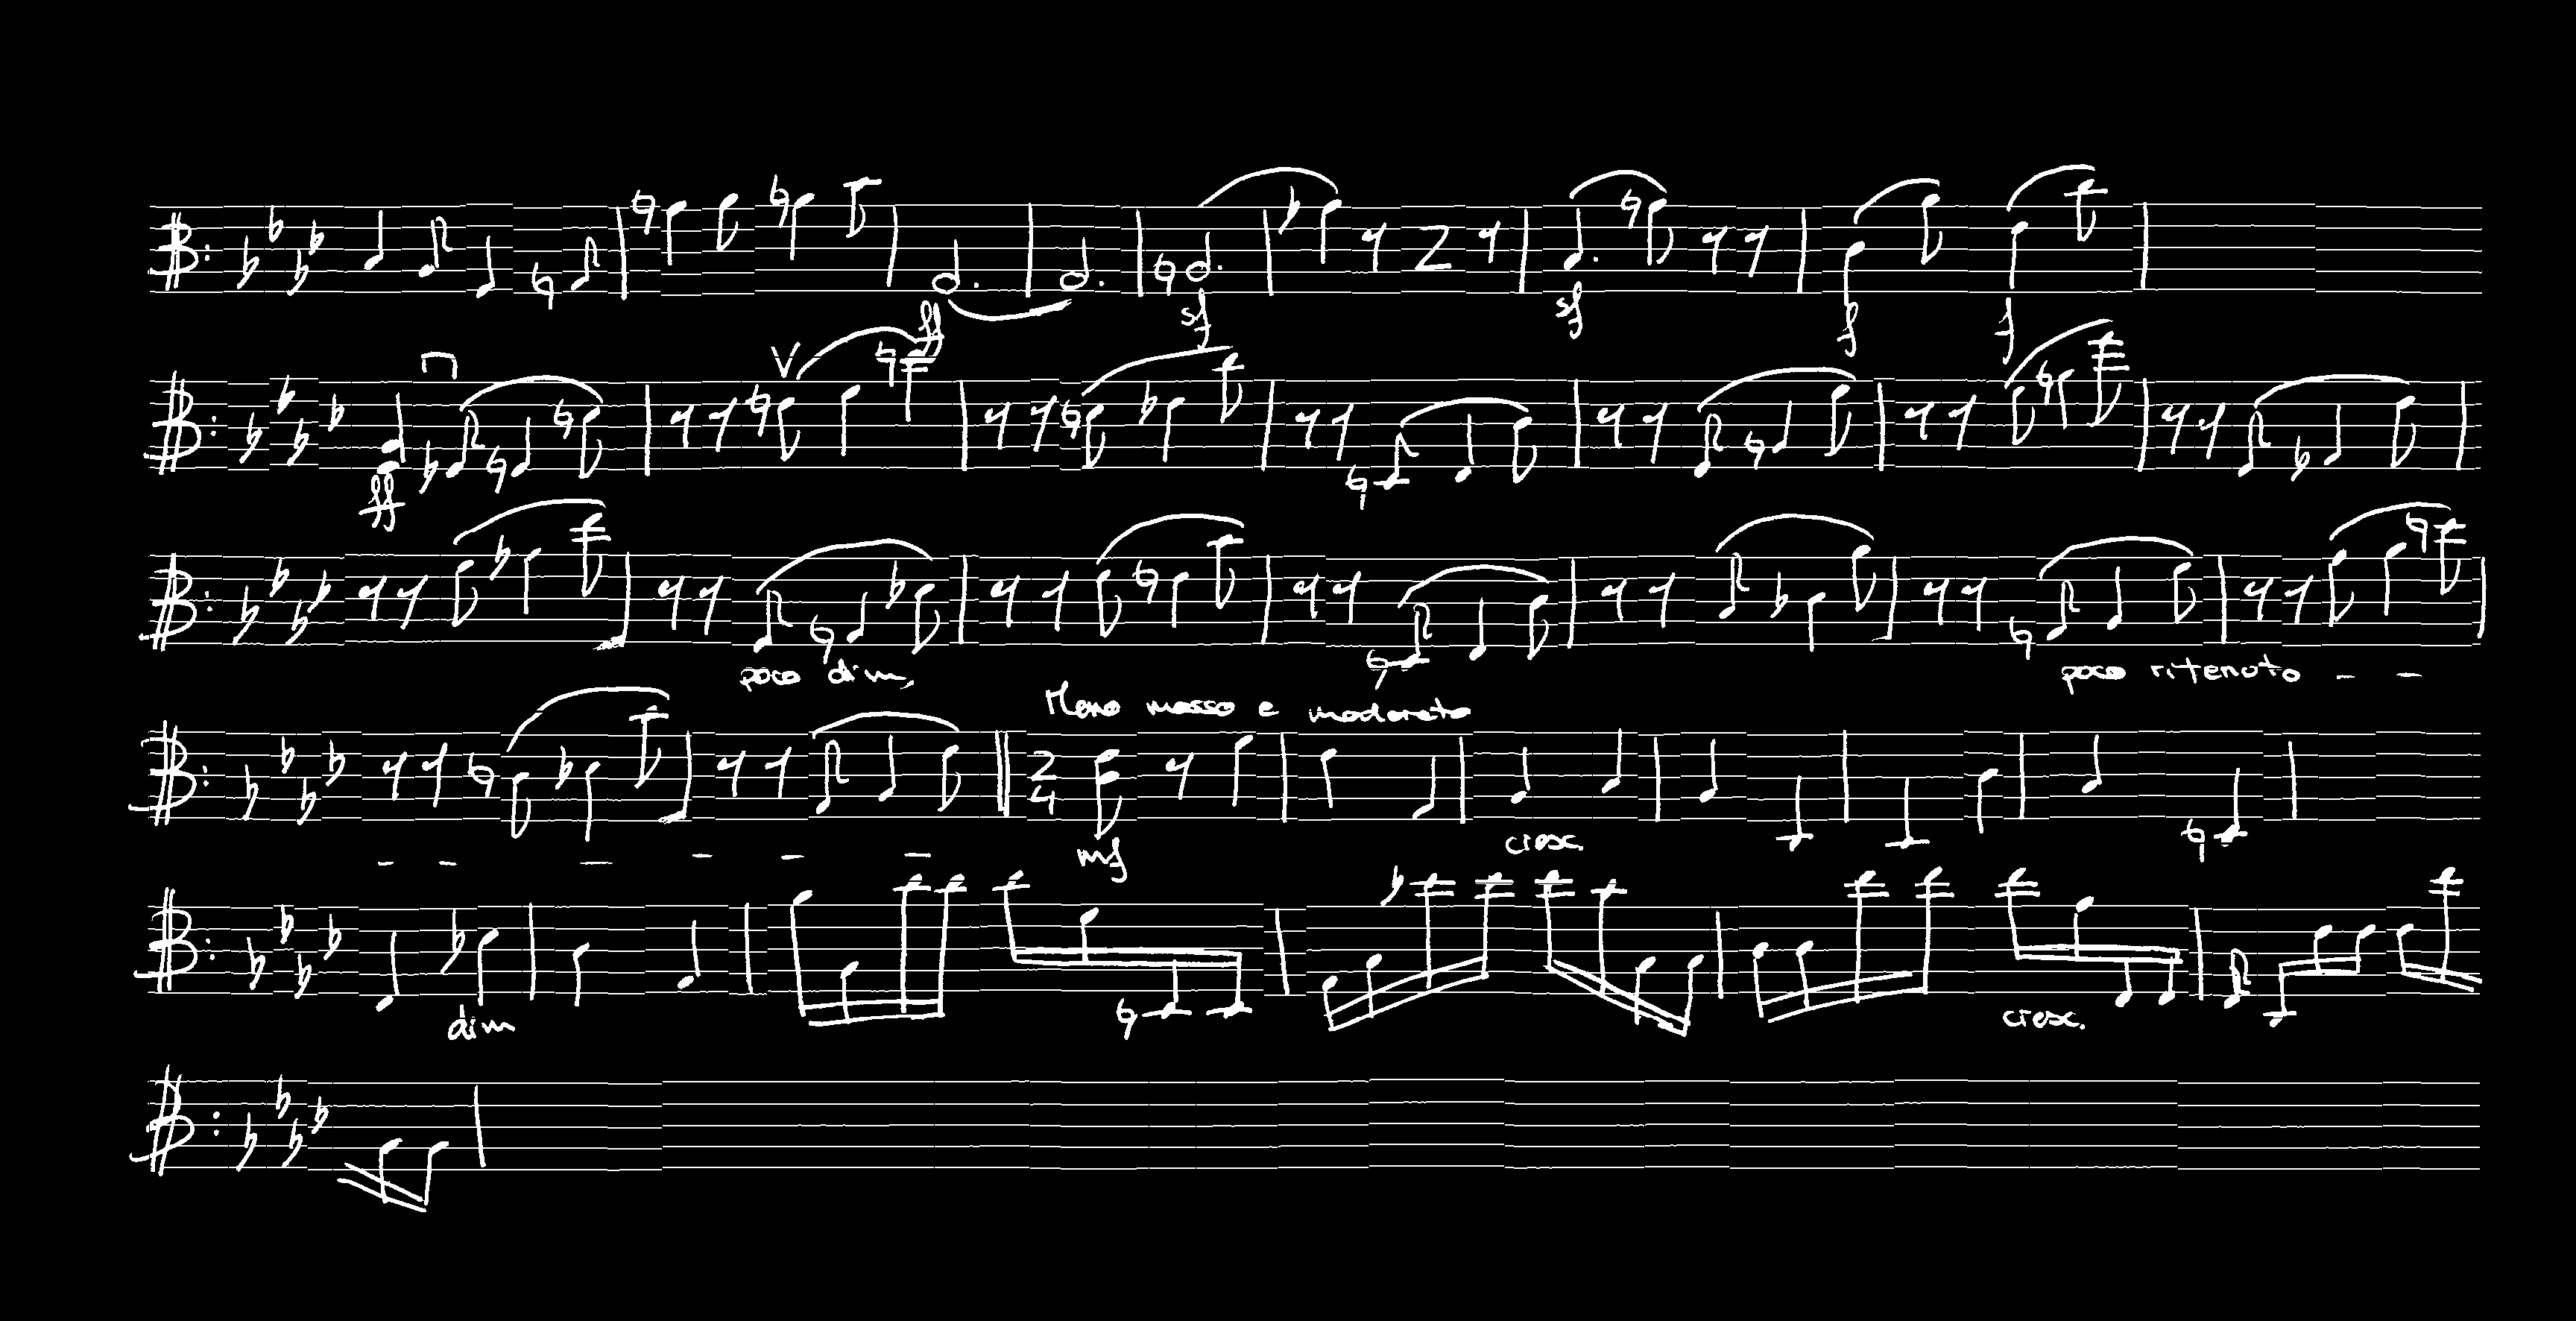 ff sf sf f f
ff
poco dim, poco ritenuto - -
Meno mosso e moderato
2 4
- - - - - - mf cresc.
dim cresc.